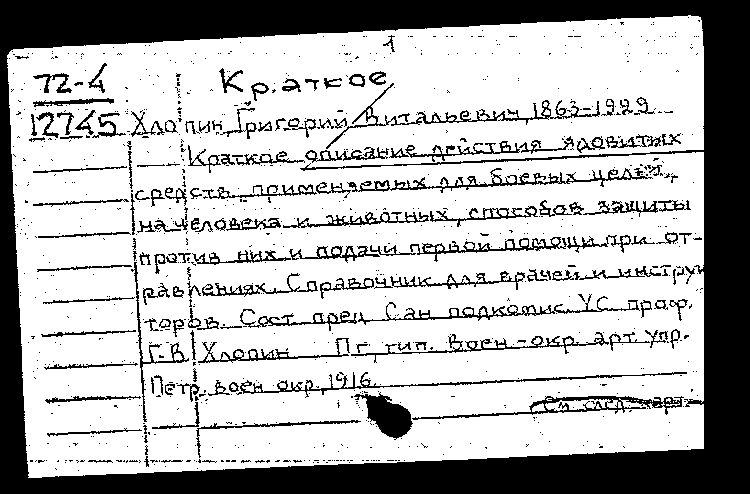 1
72-4 Краткое
12745 Хлопин, Григорий Витальевич, 1863-1929
Краткое описание действия ядовитых
средств, применяемых для боевых целей,
на человека и животных, способов защиты
против них и подачи первой помощи при от-
равлениях. Справочник для врачей и инструк
торов. Сост. пред. Сан. подкомис. УС проф.
Г.В. Хлопин Пг, тип. Воен-окр. арт. упр.
Петр. воен. окр., 1916.
См. след. карт.